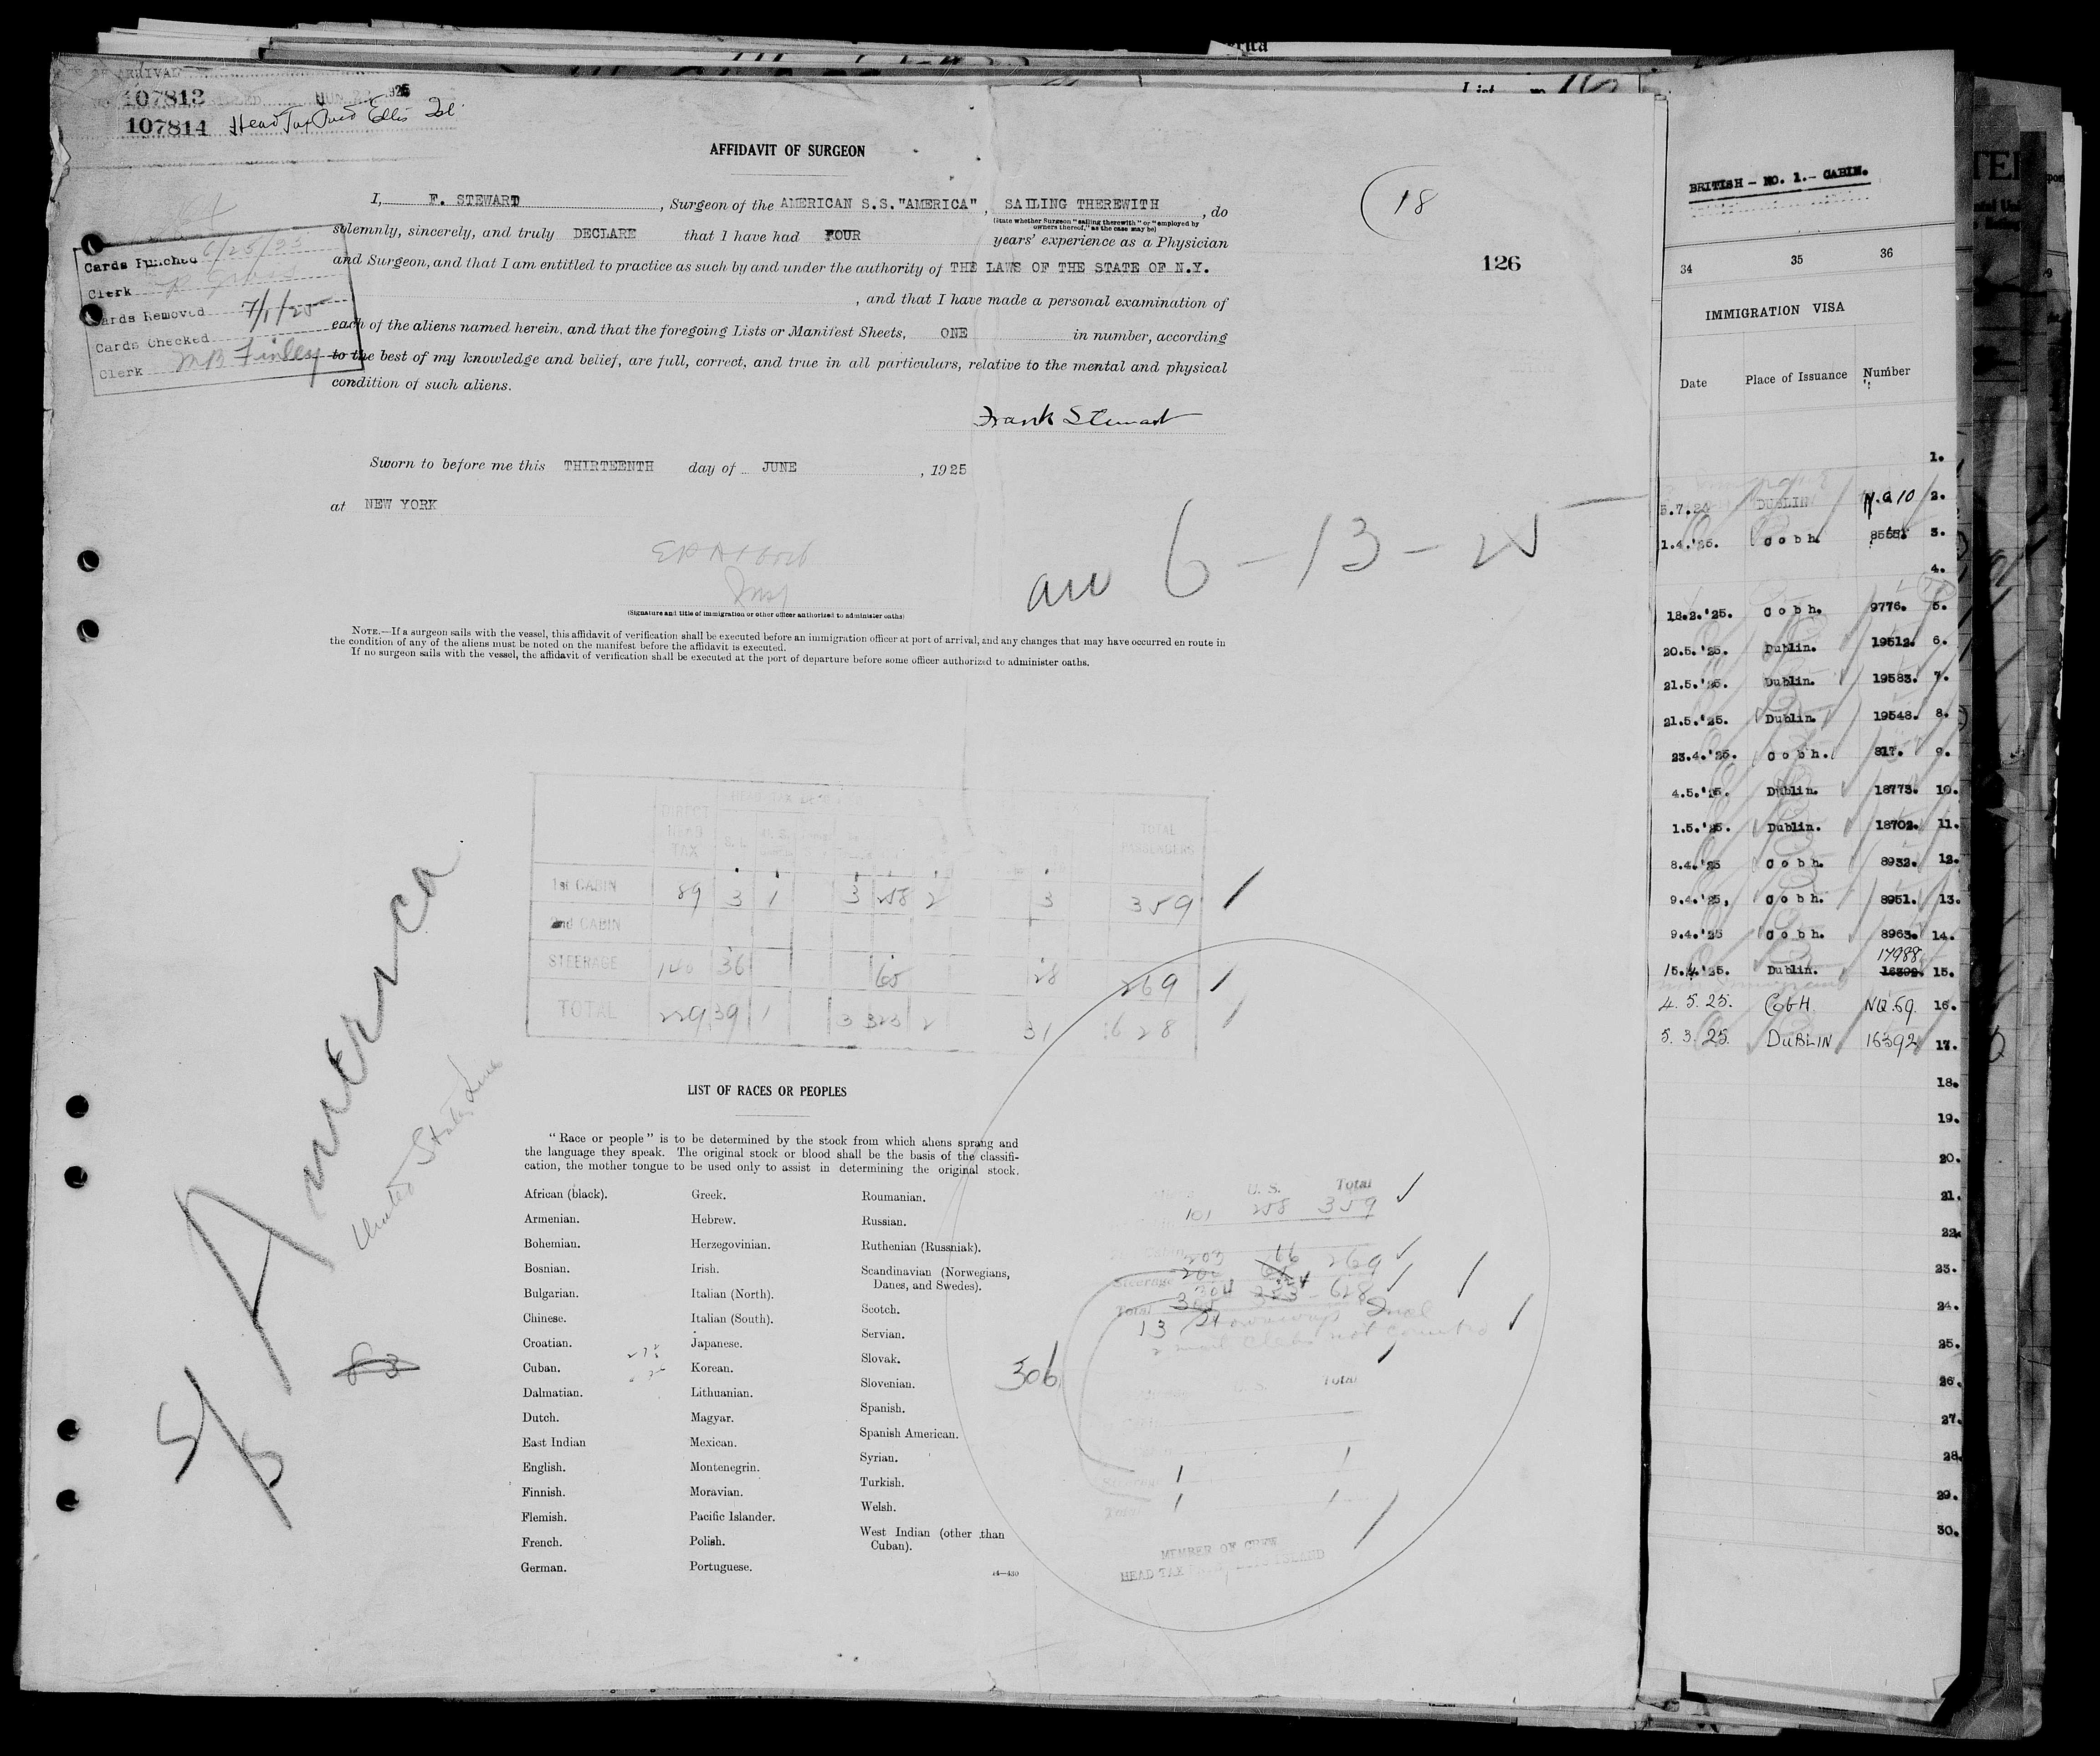 107813
107814 Head Tax Paid Ellis Isl.
AFFIDAVIT OF SURGEON
I, F. STEWART, Surgeon of the AMERICAN S.S."AMERICA", SAILING THEREWITH, do
(State whether Surgeon "sailing therewith" or "employed by
owners thereof," as the case may be)
solemnly, sincerely, and truly DECLARE that I have had FOUR years' experience as a Physician
and Surgeon, and that I am entitled to practice as such by and under the authority of THE LAWS OF THE STATE OF N.Y.
, and that I have made a personal examination of
each of the aliens named herein, and that the foregoing Lists or Manifest Sheets, ONE in number, according
to the best of my knowledge and belief, are full, correct, and true in all particulars, relative to the mental and physical
condition of such aliens.
Frank Stewart
Sworn to before me this THIRTEENTH day of JUNE, 1925
at NEW YORK
18
126
Cards Punched 6/25/25
Clerk
Cards Removed 7/1/25
Cards Checked
Clerk MB Finley
6-13-25
(Signature and title of immigration or other officer authorized to administer oaths)
NOTE.—If a surgeon sails with the vessel, this affidavit of verification shall be executed before an immigration officer at port of arrival, and any changes that may have occurred en route in
the condition of any of the aliens must be noted on the manifest before the affidavit is executed.
If no surgeon sails with the vessel, the affidavit of verification shall be executed at the port of departure before some officer authorized to administer oaths.
DIRECT HEAD TAX
TOTAL PASSENGERS
1st CABIN 89 3 1 3 258 2 3 359
2nd CABIN
STEERAGE 140 36 65 28 269
TOTAL 229 39 1 3 323 2 31 628
S/S America
United States Lines
63
LIST OF RACES OR PEOPLES
"Race or people" is to be determined by the stock from which aliens sprang and
the language they speak. The original stock or blood shall be the basis of the classifi-
cation, the mother tongue to be used only to assist in determining the original stock.
African (black).
Armenian.
Bohemian.
Bosnian.
Bulgarian.
Chinese.
Croatian.
Cuban.
Dalmatian.
Dutch.
East Indian
English.
Finnish.
Flemish.
French.
German.
Greek.
Hebrew.
Herzegovinian.
Irish.
Italian (North).
Italian (South).
Japanese.
Korean.
Lithuanian.
Magyar.
Mexican.
Montenegrin.
Moravian.
Pacific Islander.
Polish.
Portuguese.
Roumanian.
Russian.
Ruthenian (Russniak).
Scandinavian (Norwegians,
Danes, and Swedes).
Scotch.
Servian.
Slovak.
Slovenian.
Spanish.
Spanish American.
Syrian.
Turkish.
Welsh.
West Indian (other than
Cuban).
14—430
U. S. Total
101 258 359
203 66 269
Steerage
304 324 628
Total 305 323
13
306
Total
1 1
1 1
MEMBER OF CREW
HEAD TAX ELLIS ISLAND
BRITISH - NO. 1.- CABIN.
34 35 36
IMMIGRATION VISA
Date Place of Issuance Number
1.
DUBLIN N.Q 10 2.
1.4.'25. Cobh. 3.
4.
18.2.'25. Cobh. 9776. 5.
20.5.'25. Dublin. 19512. 6.
21.5.'25. Dublin. 19583. 7.
21.5.'25. Dublin. 19548. 8.
23.4.'25. Cobh. 817. 9.
4.5.'25. Dublin. 18773. 10.
1.5.'25. Dublin. 18702. 11.
8.4.'25 Cobh. 8932. 12.
9.4.'25, Cobh. 8951. 13.
9.4.'25 Cobh. 8963. 14.
17988
15.4.'25. Dublin. 16392. 15.
4.5.25. CobH NQ.69. 16.
5.3.25. DUBLIN 16392 17.
18.
19.
20.
21.
22.
23.
24.
25.
26.
27.
28.
29.
30.